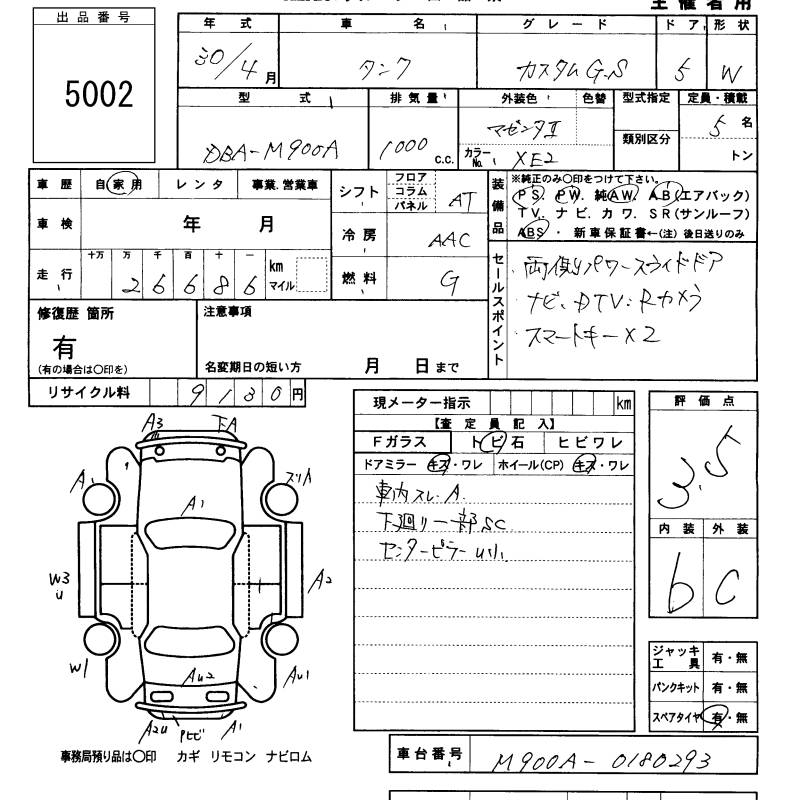 主催者用
出品番号
5002
年式 車名 グレード ドア 形状
30/4月 タンク カスタムG.S 5 W
型式 排気量 外装色 色替 型式指定 定員・積載
DBA-M900A 1000 C.C. マゼンタII 5名
類別区分
カラーNo. XE2 トン
車歴 自家用 レンタ 事業.営業車
シフト フロア コラム パネル AT
装備品
※純正のみ○印をつけて下さい。
PS. PW. 純AW. AB(エアバック)
TV. ナビ. カワ. SR(サンルーフ)
ABS ・ 新車保証書←(注) 後日送りのみ
車検 年 月
冷房 AAC
走行 十万 万 千 百 十 一
26686 km マイル
燃料 G
セールスポイント
・両側パワースライドドア
・ナビ、DTV:Rカメラ
・スマートキーX2
修復歴 箇所
有
(有の場合は○印を)
注意事項
名変期日の短い方 月 日まで
リサイクル料 9130円
現メーター指示 km
【査定員記入】
Fガラス トビ石 ヒビワレ
ドアミラー キズ・ワレ ホイール(CP) キズ・ワレ
車内スレ.A.
下廻り一部SC
センターピラーU小
評価点
3.5
内装 外装
b C
A3 下A
A1 ズリA
A1
W3
u
A2
W1
AU2 AU1
A2U トビ A1
ジャッキ工具 有・無
パンクキット 有・無
スペアタイヤ 有・無
事務局預り品は○印 カギ リモコン ナビロム
車台番号 M900A-0180293